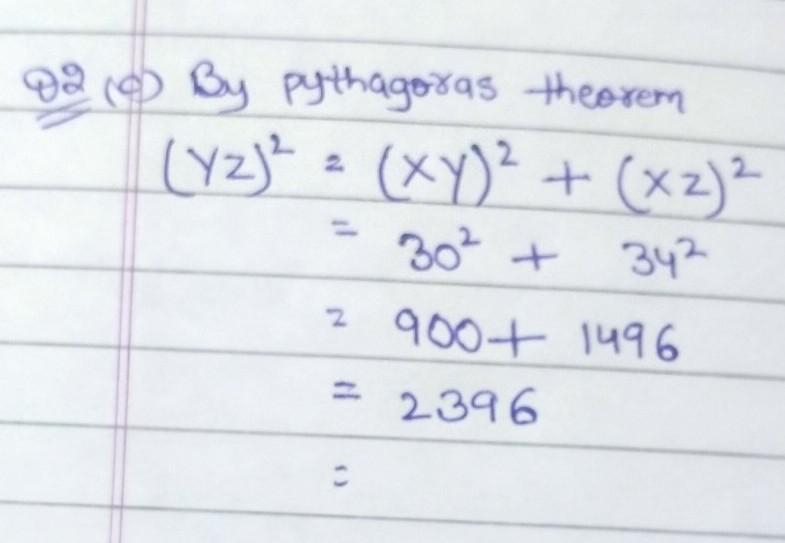 Q2 (c) By pythagoras theorem
(YZ)² = (XY)² + (XZ)²
= 30² + 34²
= 900 + 1496
= 2396
=